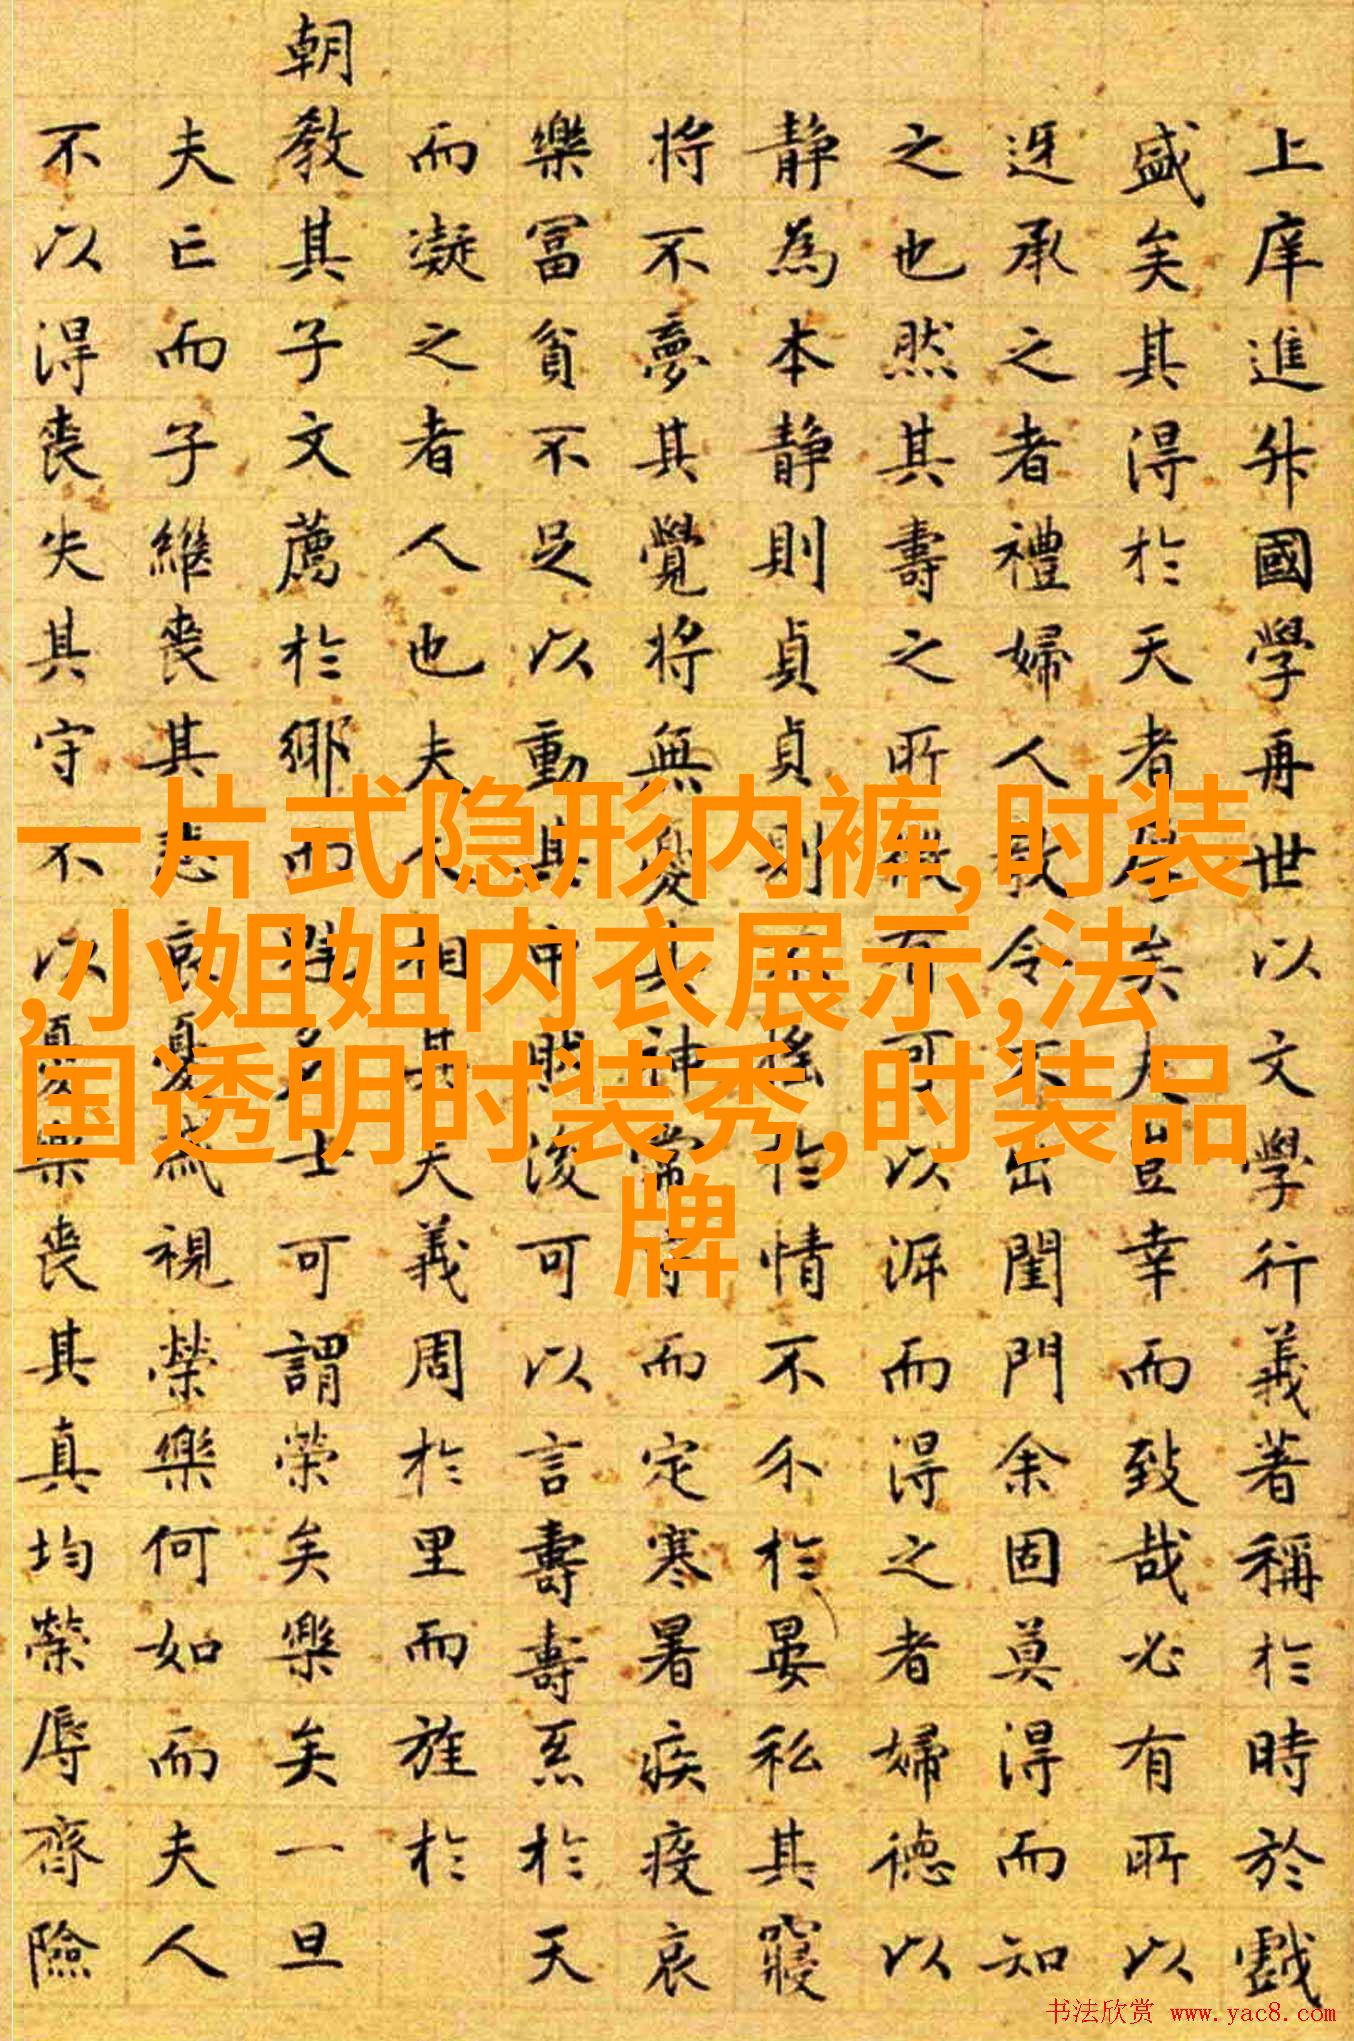 上庠進升國學再世以文學行義著稱於時於戲
盛矣其得於天者厚矣夫豈幸而致哉必有所以
迓承之者禮婦人教令不出閨門余固莫得而知
之也然其壽之所有可以而得之者婦德以
静為本静則貞貞則不搖於情不於晏私其寢
将不夢其覺将無憂其神常守而定寒暑疾疫哀
樂冨貧不足以動其中則後可以言壽壽於天
而凝之者人也夫人相其夫義周於里而旌於
朝教其子文薦於鄉而群多士可謂榮矣樂矣一旦
夫亡而子繼喪其悲哀憂戚視榮樂何如而夫人
不以得喪失其守不以憂樂喪其真均榮辱齊險
一片式隐形内裤,时装
,小姐姐内衣展示,法
国透明时装秀,时装品
牌
书法欣赏 www.yac8.com